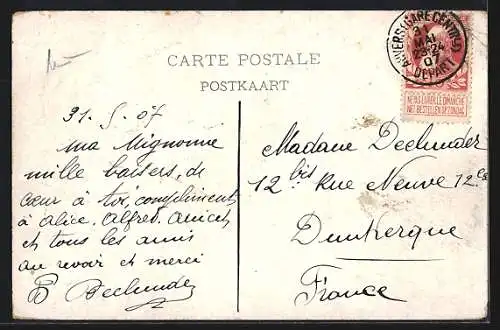 CARTE POSTALE
POSTKAART
ANVERS (GARE CENTR.)
MAI
23-24
07
DÉPART
NE PAS LIVRER LE DIMANCHE
NIET BESTELLEN OP ZONDAG
31. 5. 07
ma Mignonne
mille baisers, de
cœur à toi, compliment
à Alice. Alfred. Anicet
et tous les amis
au revoir et merci
Madame
12 bis Rue Neuve 12
Dunkerque
France